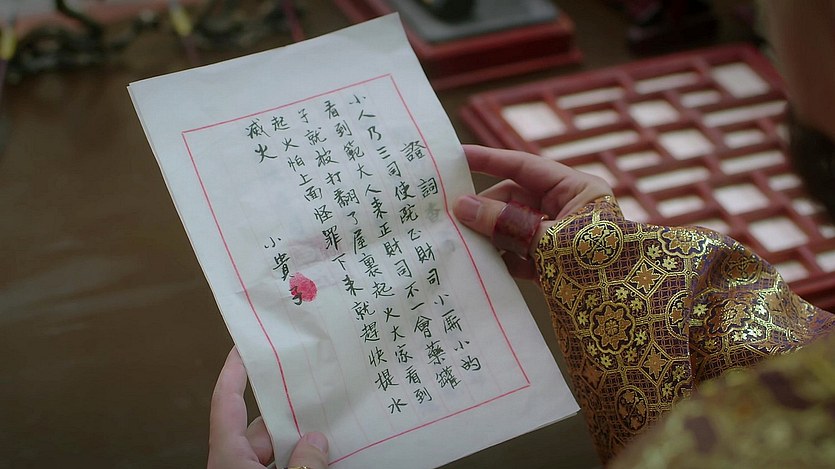 證詞
小人乃三司使院正財司小廝小的
看到範大人來正財司不一會藥罐
子就被打翻了屋裏起火大家看到
起火怕上面怪罪下來就趕快提水
滅火
小貴子